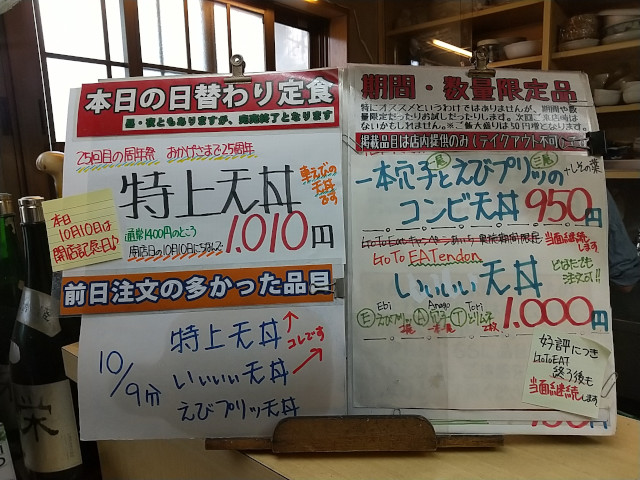 本日の日替わり定食
昼・夜ともありますが、完売終了となります
25回目の周年祭 おかげさまで25周年
特上天丼
車えびの
天丼
です
通常1400円のところ
開店日の10月10日にちなんで
1,010円
本日
10月10日は
開店記念日♪
前日注文の多かった品目
10/9分
特上天丼
コレです
いいいい天丼
えびプリッツ天丼
期間・数量限定品
特にオススメというわけではありませんが、期間や数
量限定だったりお試しだったりします。次回ご来店時は
ないかもしれませ。※ご飯大盛りは50円増となります。
掲載品目は店内提供のみ(テイクアウト不可)
一本穴子とえびプリッツの
+しその葉
コンビ天丼 950円
当面継続
します
GoTo EATendon
いいいい天丼
どなたでも
注文ok!!
Ebi Anago Tori
E えびプリッツ A 穴子 T とりム子
2枚
1.000円
好評につき
GoToEAT
終了後も
当面継続します
栄